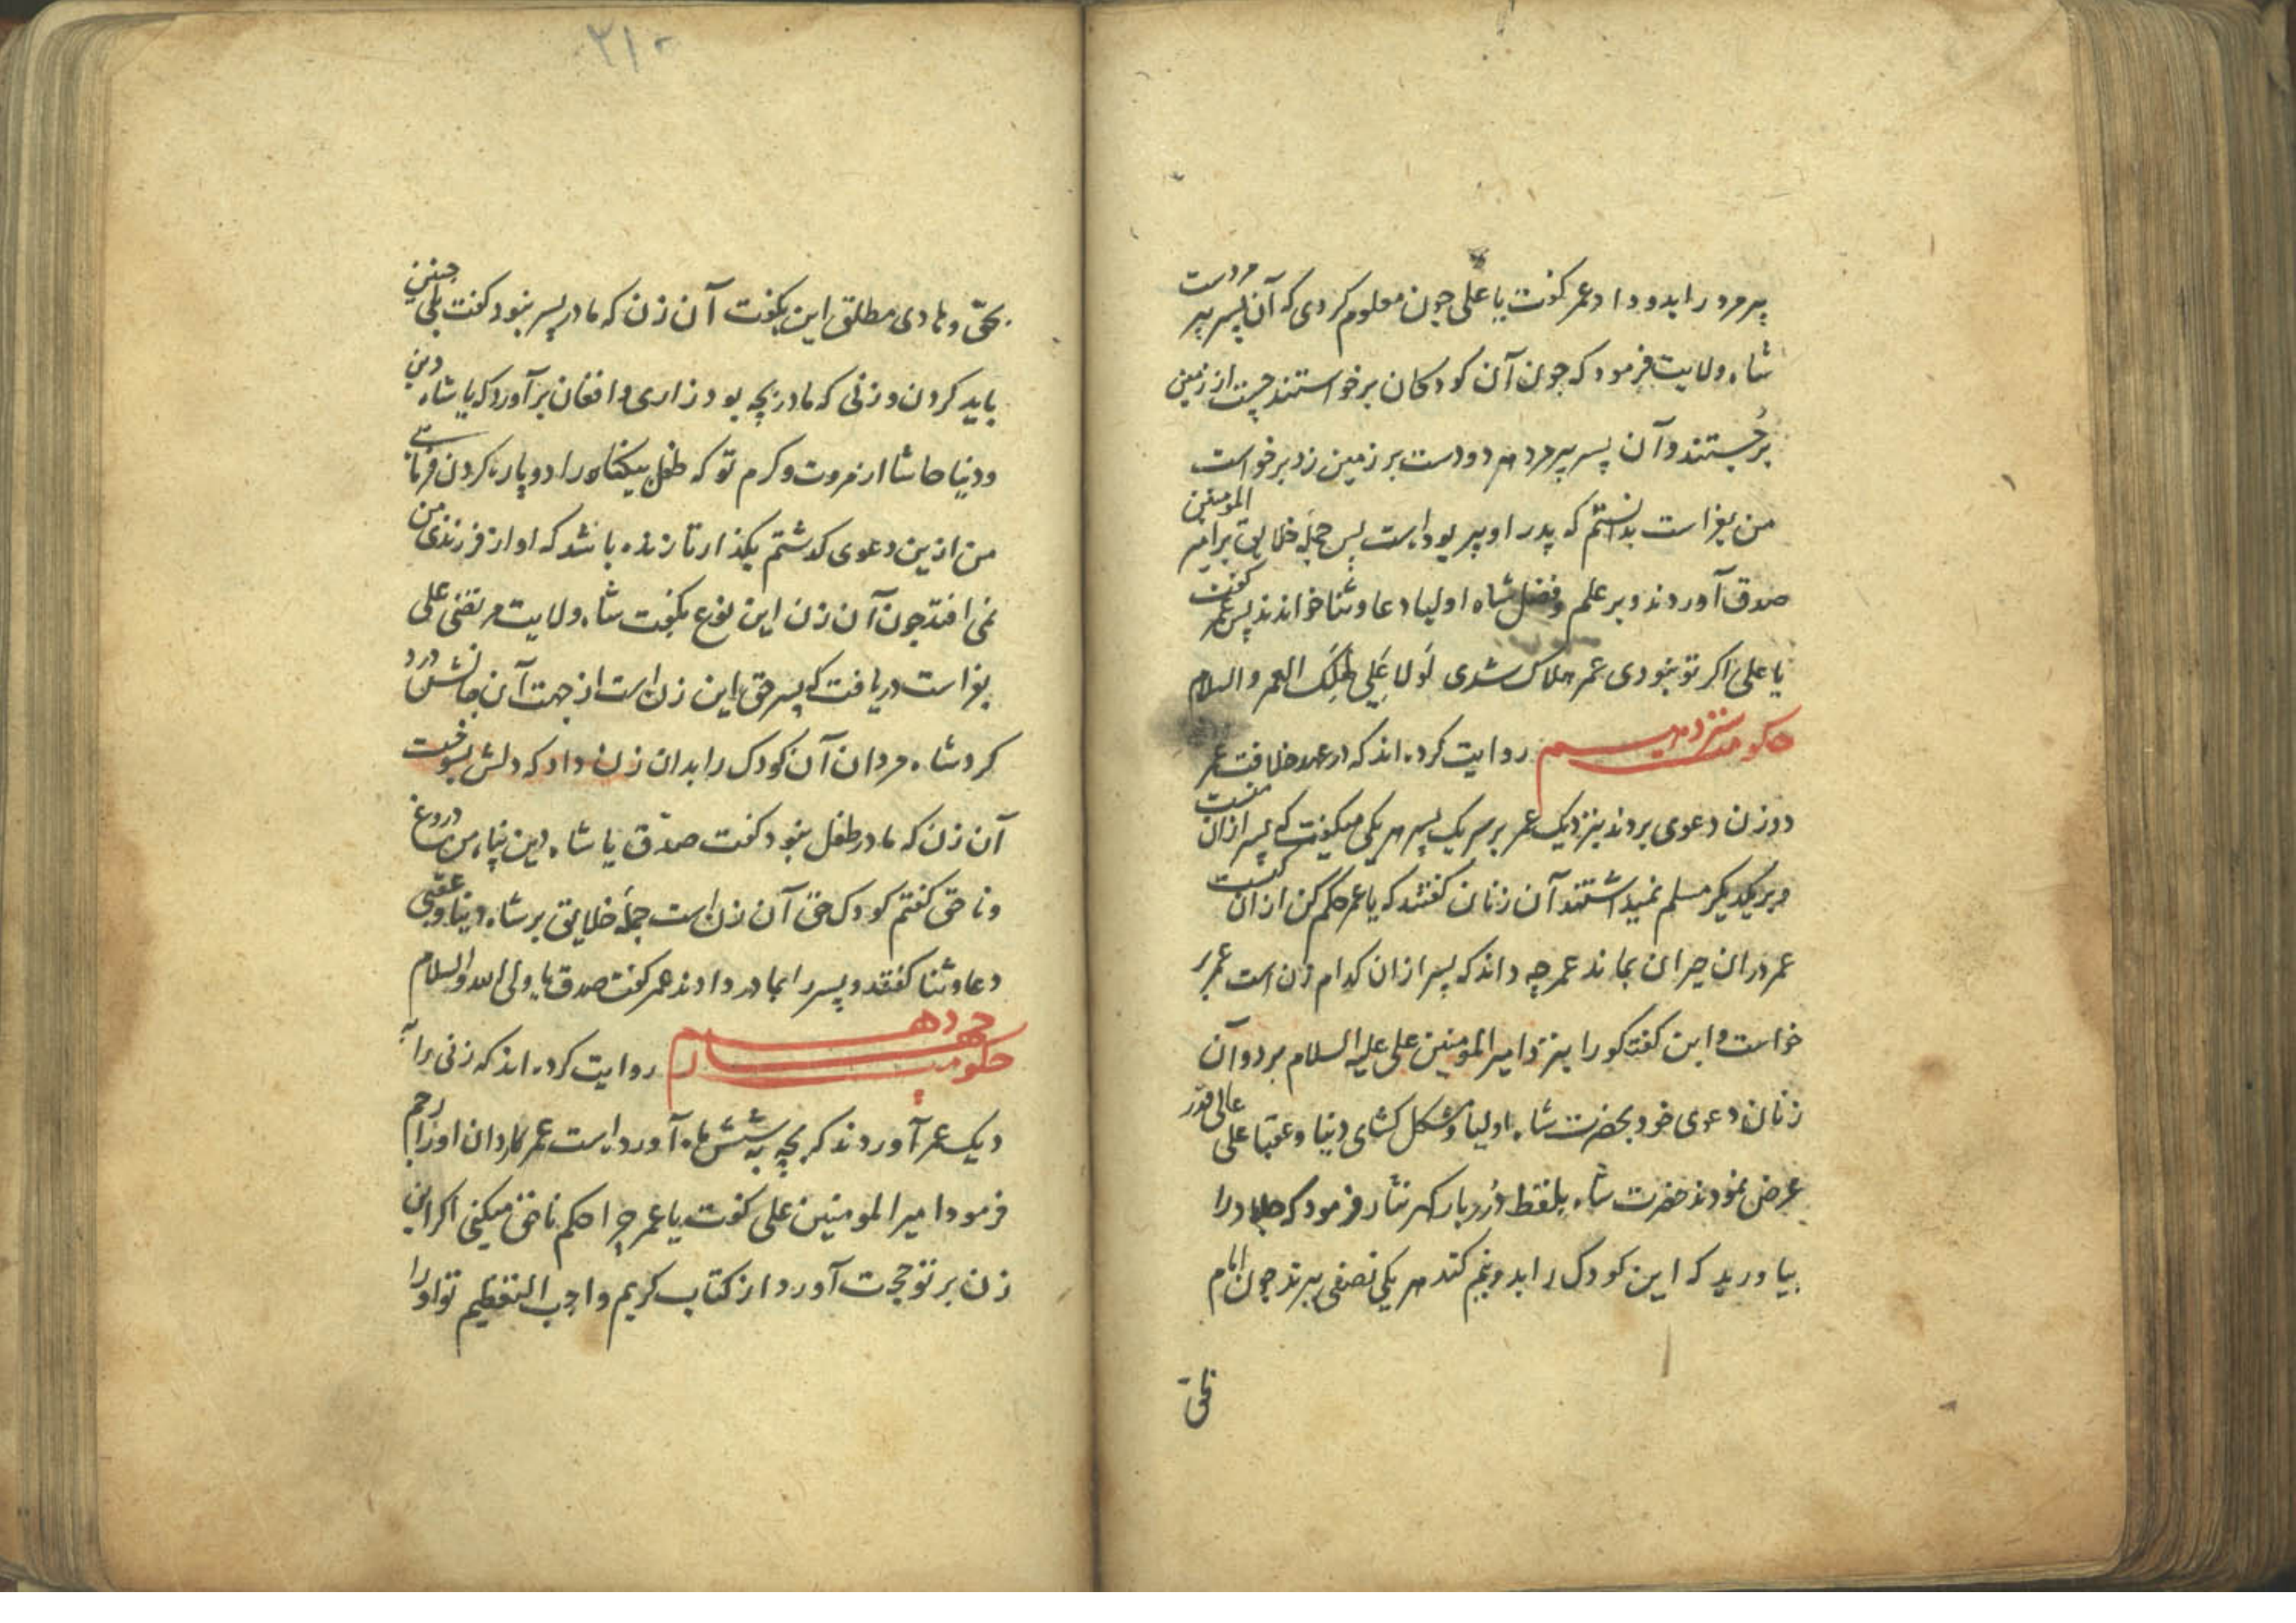 پیر مرد را بدو داد عمر گفت یا علی چون معلوم کردی که آن پسر پیر مردست
شاه ولایت فرمود که چون آن کودکان برخواستند چست از زمین
برجستند و آن پسر پیر مرد هر دو دست بر زمین زد برخواست
من بفراست بدانستم که پدر او پیر بوداست پس جمله خلایق بر امیر المومنین
صدق آوردند و بر علم و فضل شاه اولیا دعا و ثنا خواندند پس عمر گفت
یا علی اگر تو نبودی عمر هلاک شدی لَولا عَلِی لَهَلَکَ العمر والسلام
حکومت سیزدهم روایت کرده اند که در عهد خلافت عمر
دو زن دعوی بردند بنزدیک عمر بر سر یک پسر هر یکی میگفت که پسر از آن منست
و بر یکدیگر مسلم نمیداشتند آن زنان گفتند که یا عمر حکم کن از آن کیست
عمر در آن حیران بماند عمر چه داند که پسر از آن کدام زن است عمر بر
خواست و این گفت کو را بنزد امیر المومنین علی علیه السلام برد و آن
زنان دعوی خود بحضرت شاه اولیا و مشکل کشای دنیا و عقبا علی عالی قدر
عرض نمودند حضرت شاه بلفظ دُرر بار گهر نثار فرمود که جلاد را
بیاورید که این کودک را بدو نیم کند هر یکی نصفی ببرند چون امام
بحق
۲۱۰
بحق و هادی مطلق این بگفت آن زن که مادر پسر نبود گفت بلی چنین
باید کردن و زنی که مادر بچه بود زاری و افغان برآورد که یا شاه دین
و دنیا حاشا از مروت و کرم تو که طفل بیکناه را دو پاره کردن فرمائی
من ازین دعوی گذشتم بگذار تا زنده باشد که او از فرزندی من
نمی افتد چون آن زن این نوع بگفت شاه ولایت مرتضی علی
بفراست دریافت که پسر حق این زن است از جهت آن جانش درد
کرد شاه مردان آن کودک را بدان زن داد که دلش بسوخت
آن زن که مادر طفل نبود گفت صدّق یا شاه دین پناه من دروغ
و ناحق گفتم کودک حق آن زن است جمله خلایق بر شاه دنیا و عقبی
دعا و ثنا گفتند و پسر را بمادر دادند عمر گفت صدق یا ولی الله والسلام
حکومت چهاردهم روایت کرده اند که زنی را به نز
دیک عمر آوردند که بچه به شش ماه آورد است عمر نادان او را رجم
فرمود امیر المومنین علی گفت یا عمر چرا حکم ناحق میکنی اگر این
زن بر تو حجت آورد از کتاب کریم واجب التعظیم تو او را